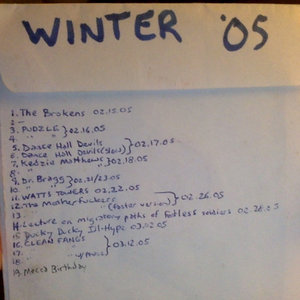 WINTER '05
1. The Brokens 02.15.05
2. "
3. PUDZLE } 02.16.05
4. "
5. Dance Hall Devils } 02.17.05
6. Dance Hall Devils (slow)
7. Kedzie Matthews } 02.18.05
8. " "
9. Dr. Bragg } 02.21/23.05
10. " "
11. WATTS TOWERS 02.22.05
12. The Motherfuckers } 02.26.05
13. " (faster version)
14. Lecture on migratory paths of footless soldiers 02.28.05
15. Ducky Ducky Ill-Hype 03.02.05
16. CLEAN FANGS } 03.12.05
17. "
18. " w/
19. Mecca Birthday